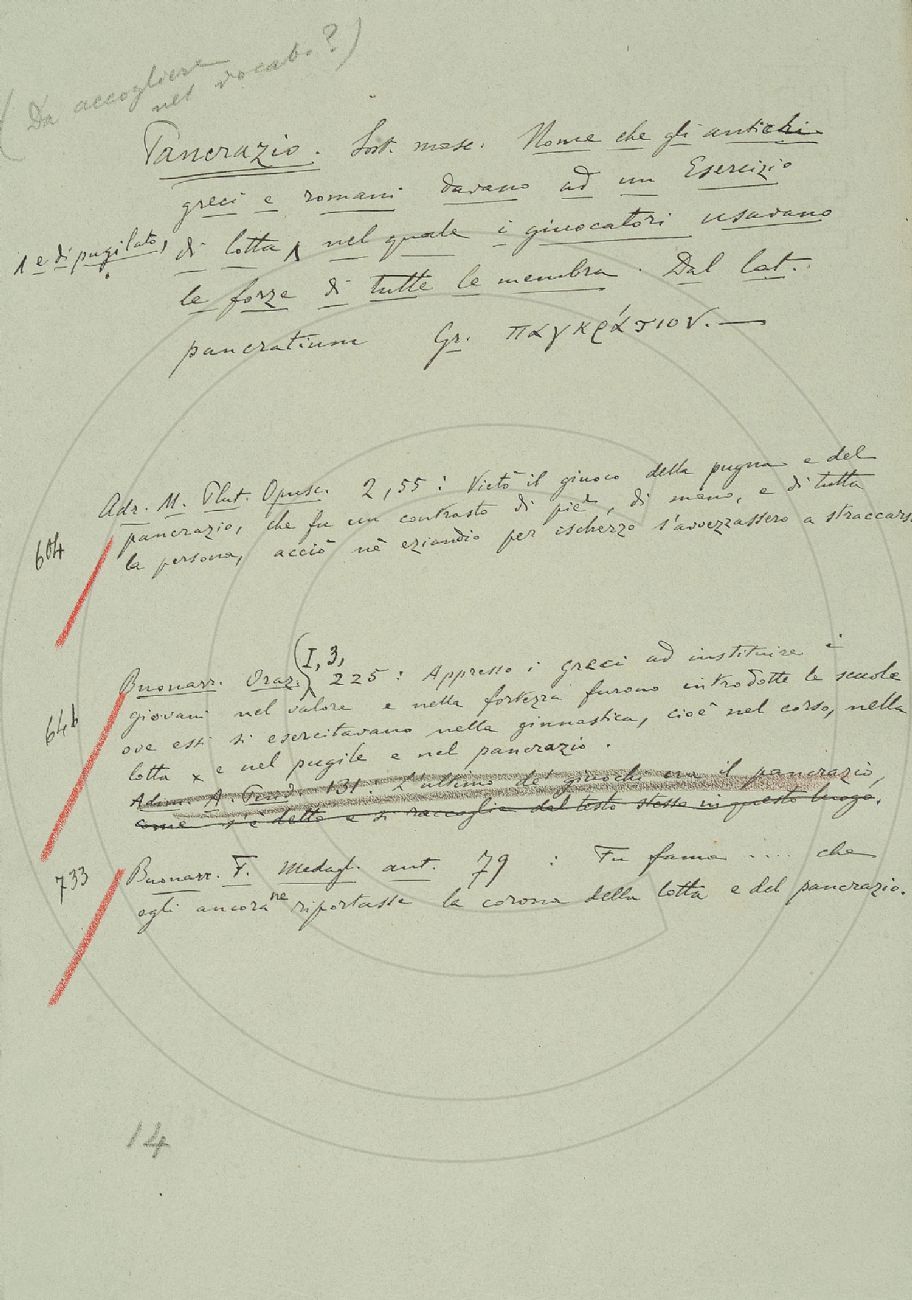 (Da accogliere
nel vocab.?)
Pancrazio. Sost. masc. Nome che gli antichi
greci e romani davano ad un Esercizio
1 e di pugilato,
di lotta, nel quale i giuocatori usavano
le forze di tutte le membra. Dal lat.
pancratium Gr. παγκράτιον.—
Adr. M. Plut. Opusc. 2,55: Vietò il giuoco della pugna e del
604
pancrazio, che fu un contrasto di piè, di mano, e di tutta
la persona, acciò nè eziandio per ischerzo s'avvezzassero a straccarsi
(I, 3,
Buonarr. Oraz.) 225: Appresso i greci ad instituire i
64b
giovani nel valore e nella fortezza furono introdotte le scuole
ove essi si esercitavano nella ginnastica, cioè nel corso, nella
lotta x e nel pugile e nel pancrazio.
Adim. A. Pind. 131: L'ultimo de' giuochi era il pancrazio,
come s'è detto e si raccoglie dal testo stesso in questo luogo.
733
Buonarr. F. Medagl. ant. 79: Fu fama .... che
egli ancora ne riportasse la corona della lotta e del pancrazio.
14